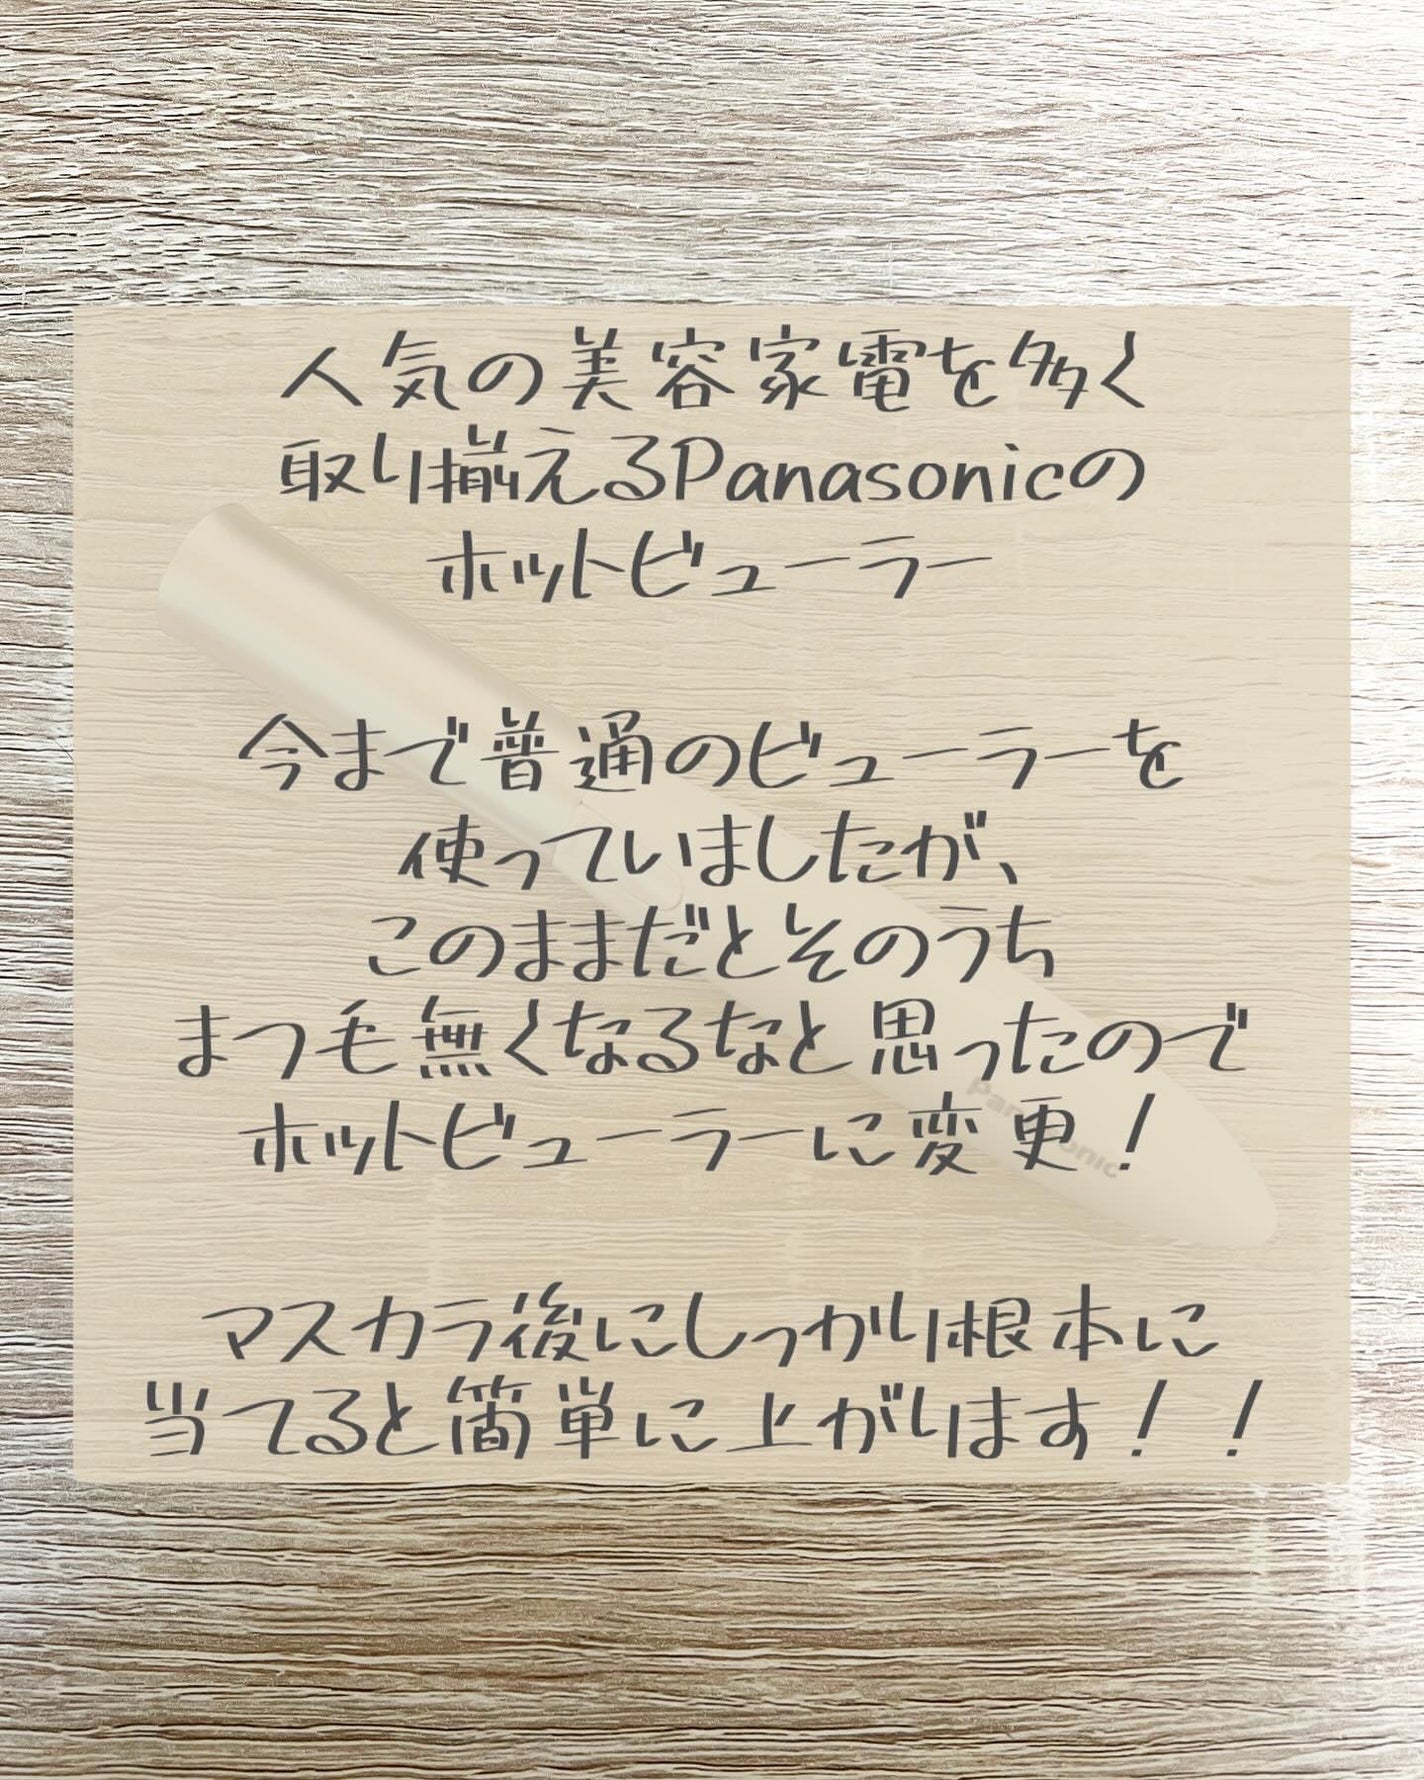 人気の美容家電を多く
取り揃えるPanasonicの
ホットビューラー
今まで普通のビューラーを
使っていましたが、
このままだとそのうち
まつ毛無くなるなと思ったので
ホットビューラーに変更！
Panasonic
マスカラ後にしっかり根本に
当てると簡単に上がります！！